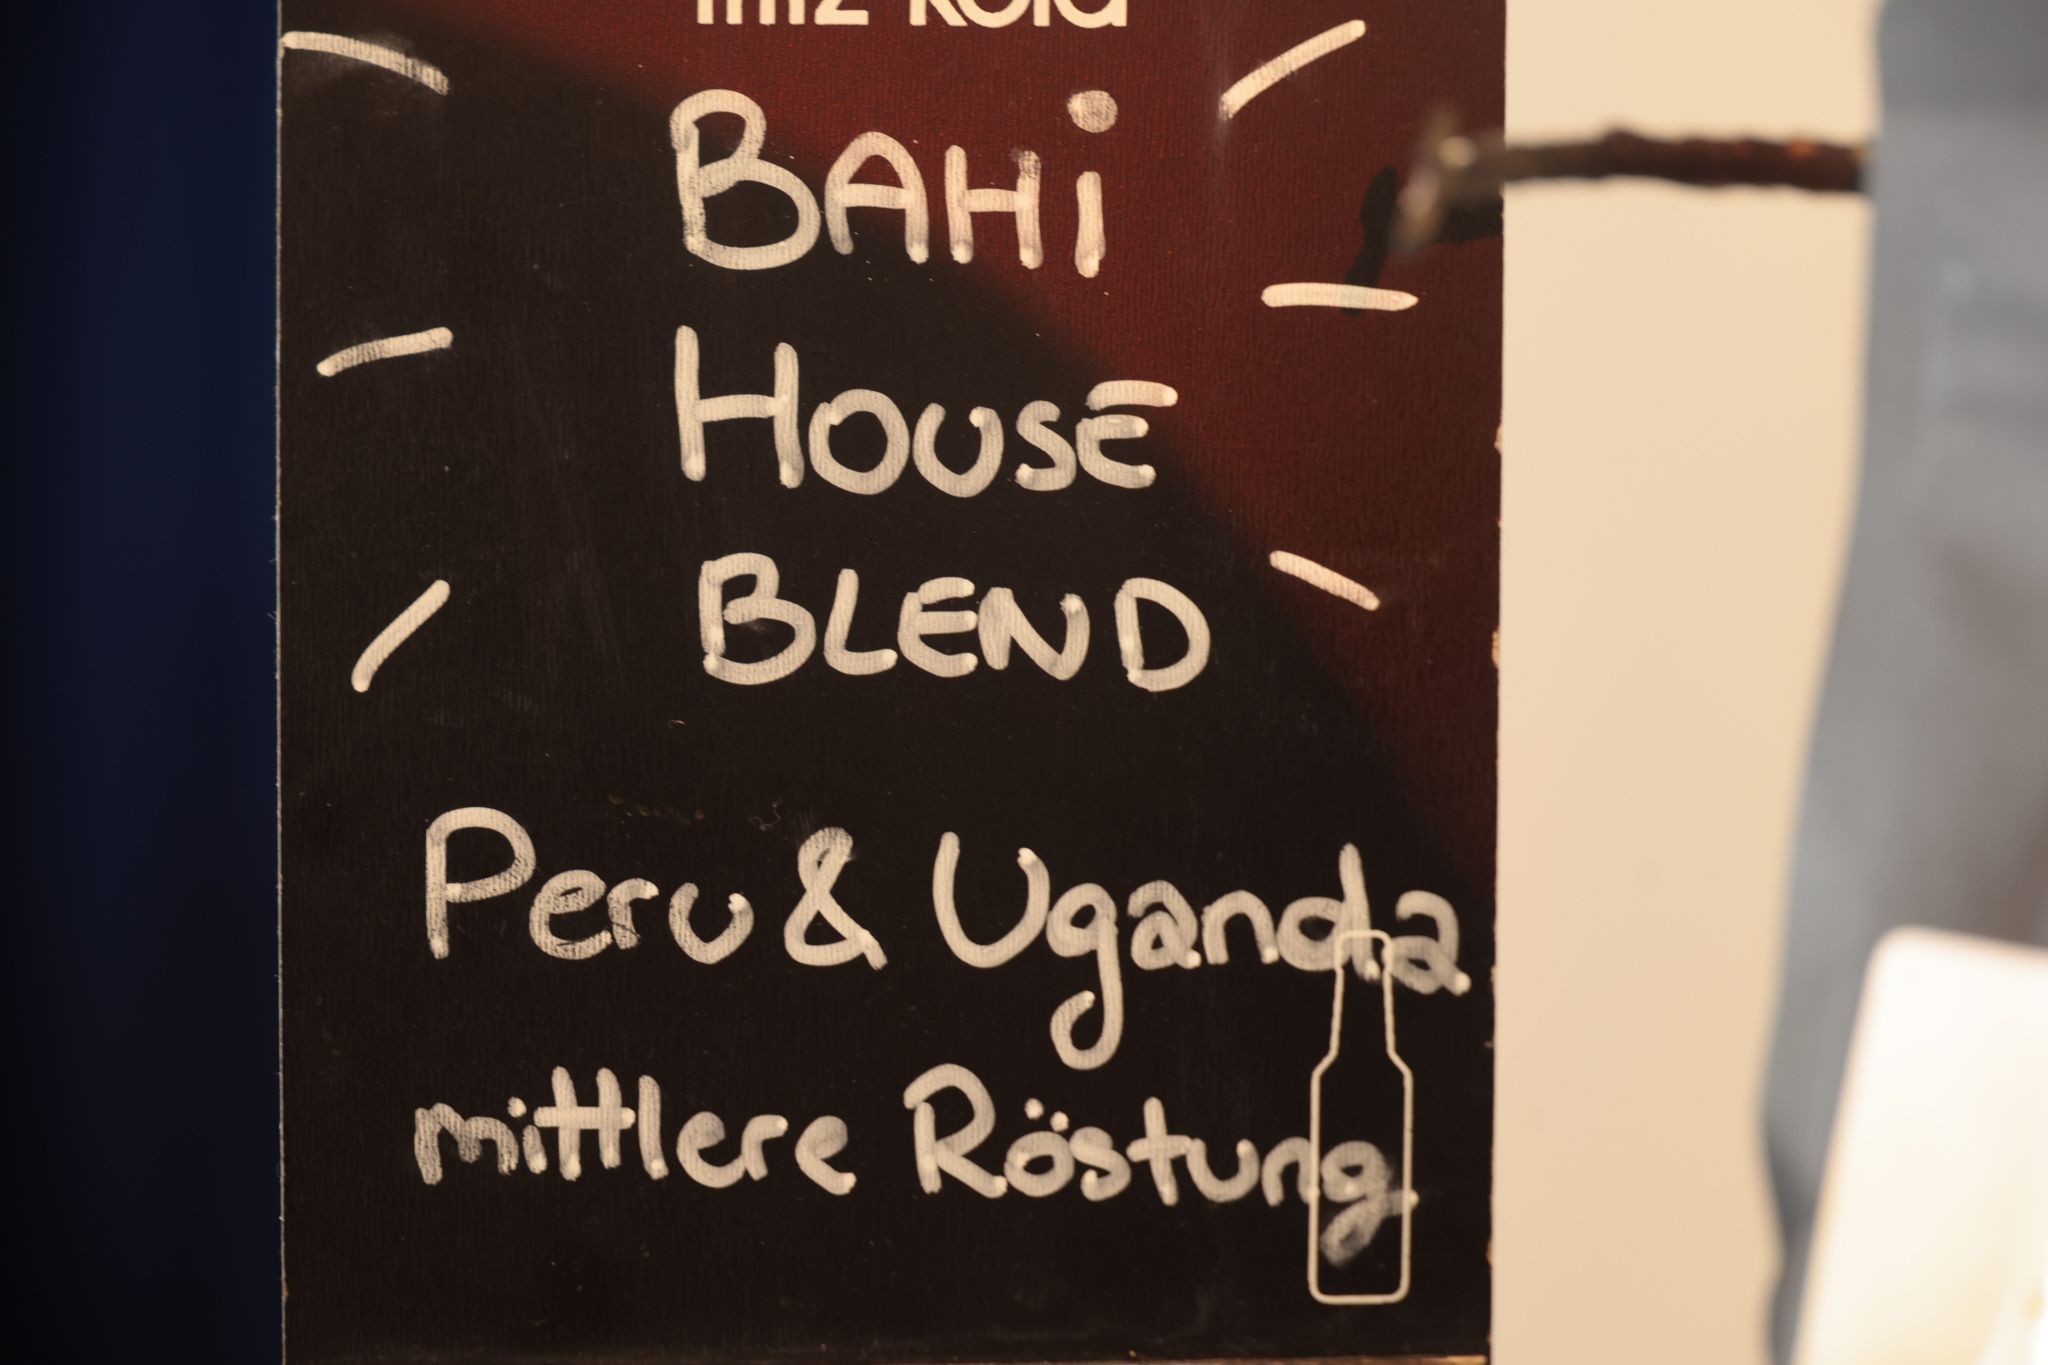 fritz-kola
BAHi
HOUSE
BLEND
Peru & Uganda
mittlere Röstung